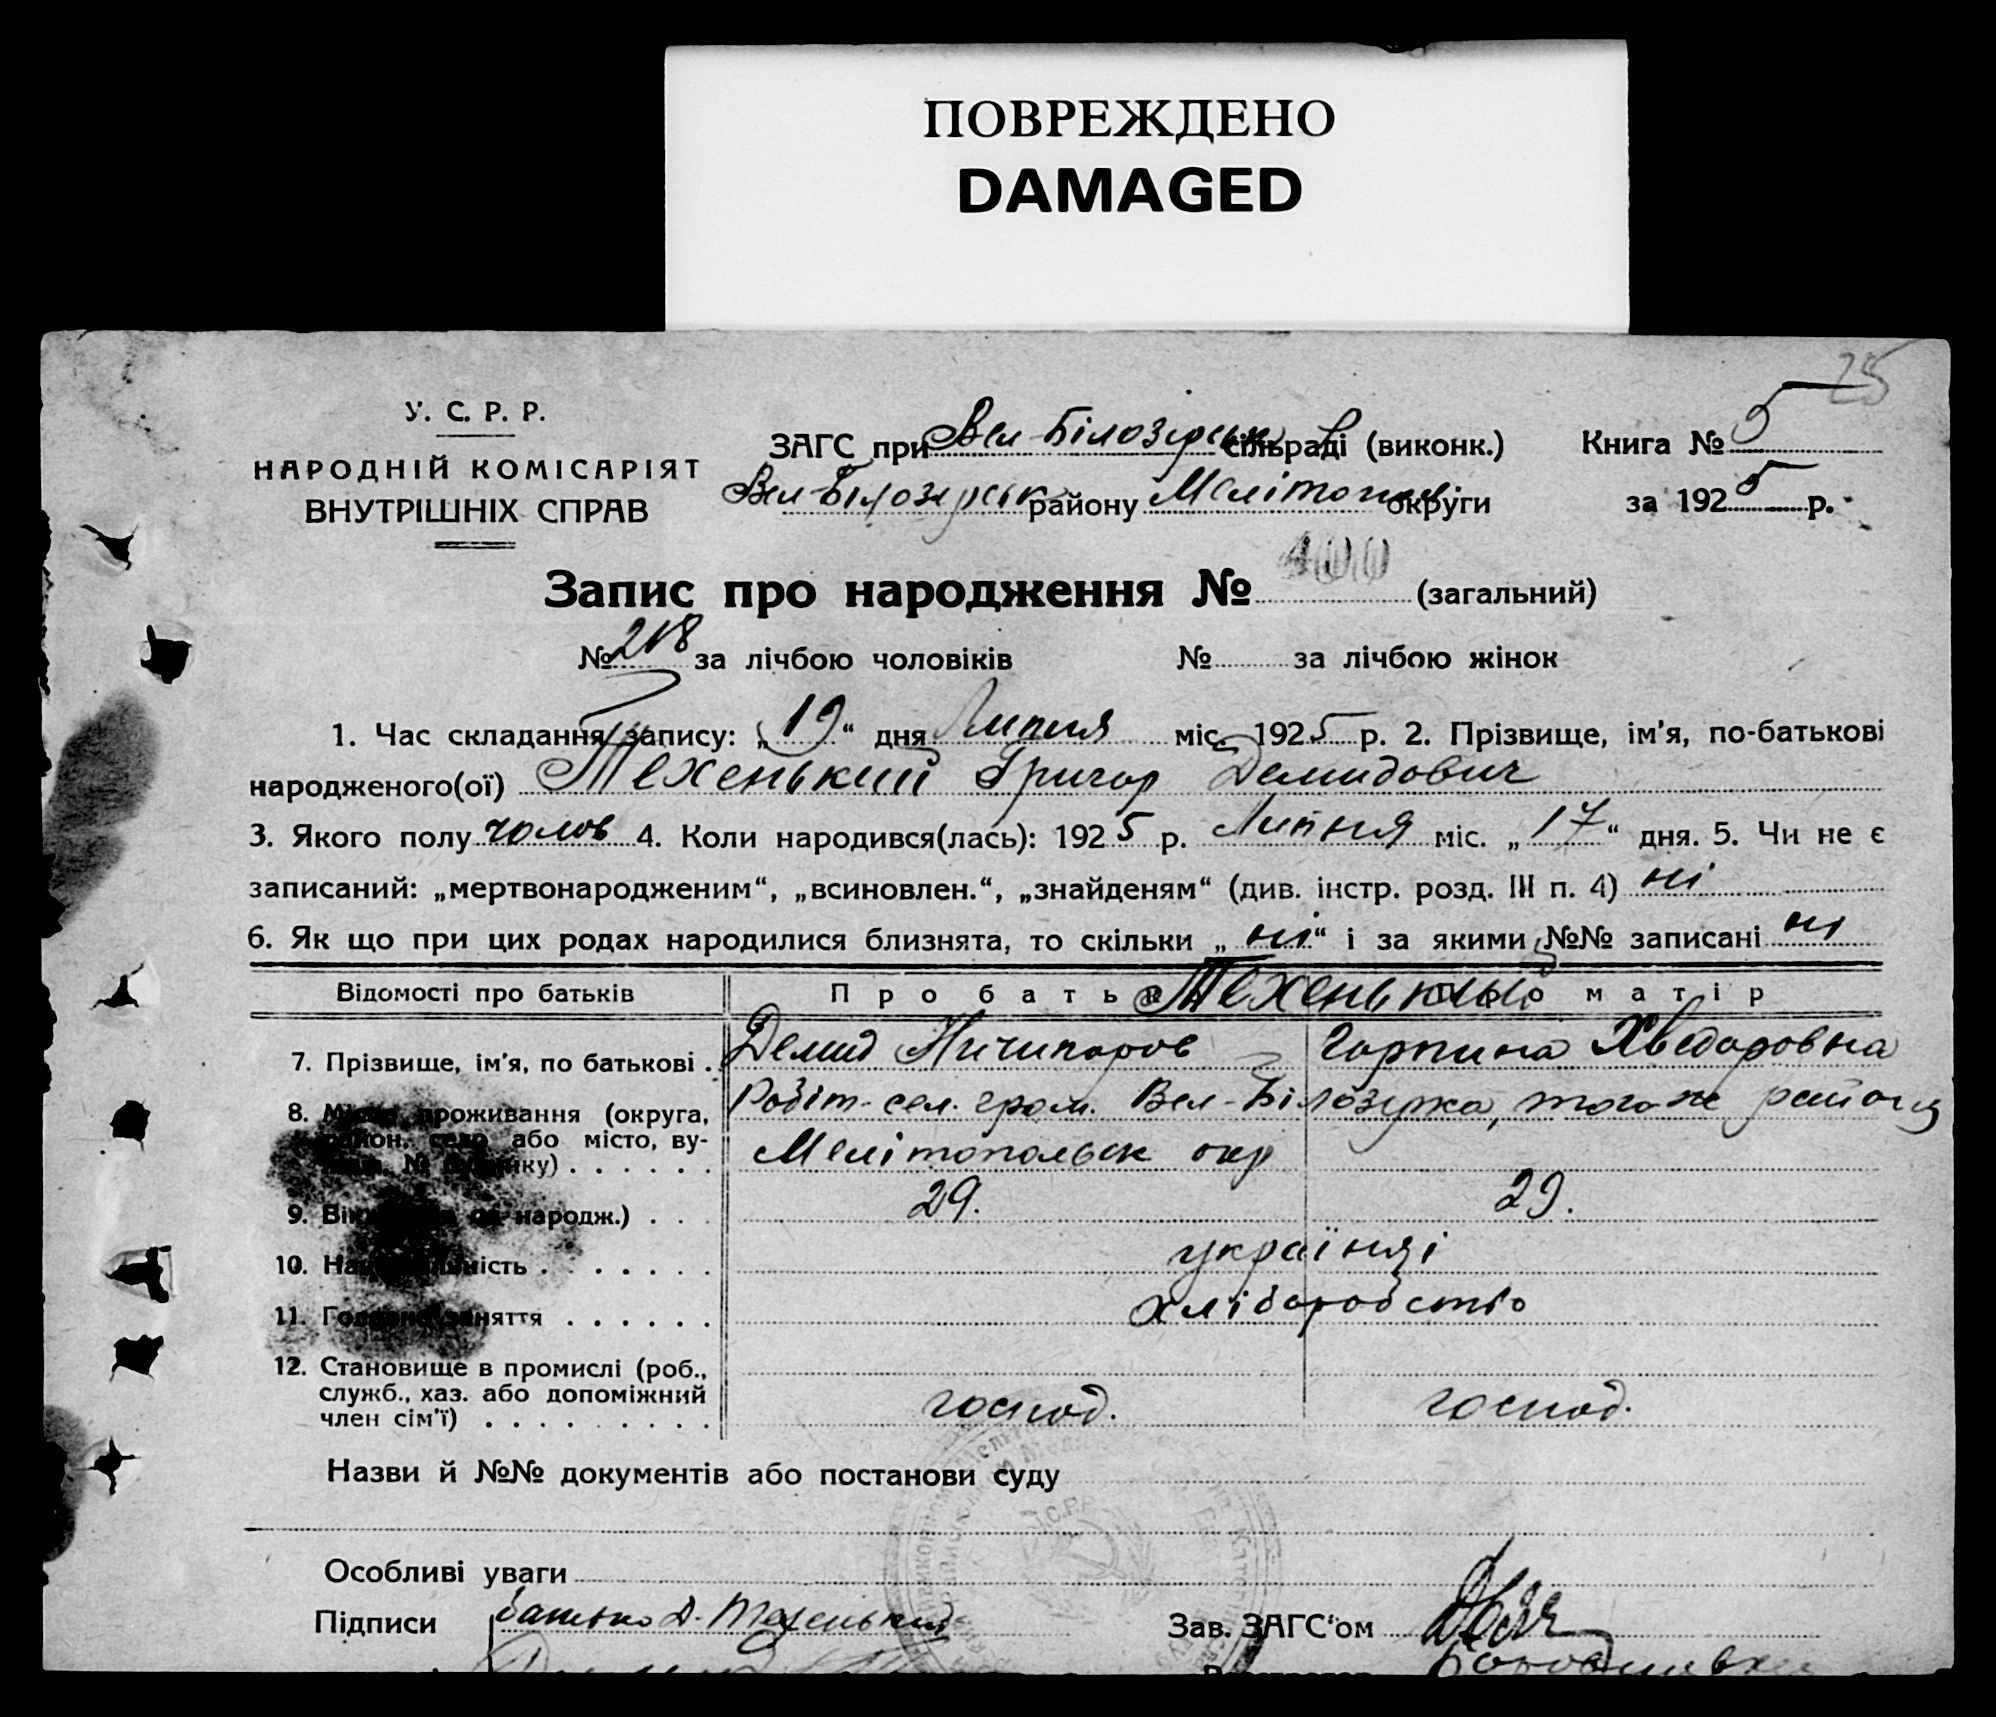 ПОВРЕЖДЕНО
DAMAGED
25
У. С. Р. Р.
НАРОДНІЙ КОМІСАРІЯТ
ВНУТРІШНІХ СПРАВ
ЗАГС при Вел-Білозірськ сільраді (виконк.)
Вел-Білозірськ району Мелітопол округи
Книга № 5
за 1925 р.
Запис про народження № 400 (загальний)
№ 218 за лічбою чоловіків № за лічбою жінок
1. Час складання запису: „19“ дня Липня міс. 1925 р. 2. Прізвище, ім'я, по-батькові
народженого(ої) Техенький Григор Демидович
3. Якого полу чолов 4. Коли народився(лась): 1925 р. Липня міс. „17“ дня. 5. Чи не є
записаний: „мертвонародженим“, „всиновлен.“, „знайденям“ (див. інстр. розд. III п. 4) ні
6. Як що при цих родах народилися близнята, то скільки „ні“ і за якими №№ записані ні
Відомості про батьків Про батька Про матір
Техенькі
7. Прізвище, ім'я, по батькові . Демид Ничипоров Горпина Хведоровна
8. Місце проживання (округа, Робіт-сел. гром. Вел-Білозірка, того ж району
район, село або місто, ву-
№ будинку) . . . . . . Мелітопольск окр
9. Вік народж.) . . . 29. 29.
10. Національність . . . . . . . українці
11. Головне заняття . . . . . . хліборобство
12. Становище в промислі (роб.,
служб., хаз. або допоміжний
член сім'ї) . . . . . . . . . господ. господ.
Назви й №№ документів або постанови суду
Особливі уваги
Підписи батько Д. Техенький Зав. ЗАГС'ом